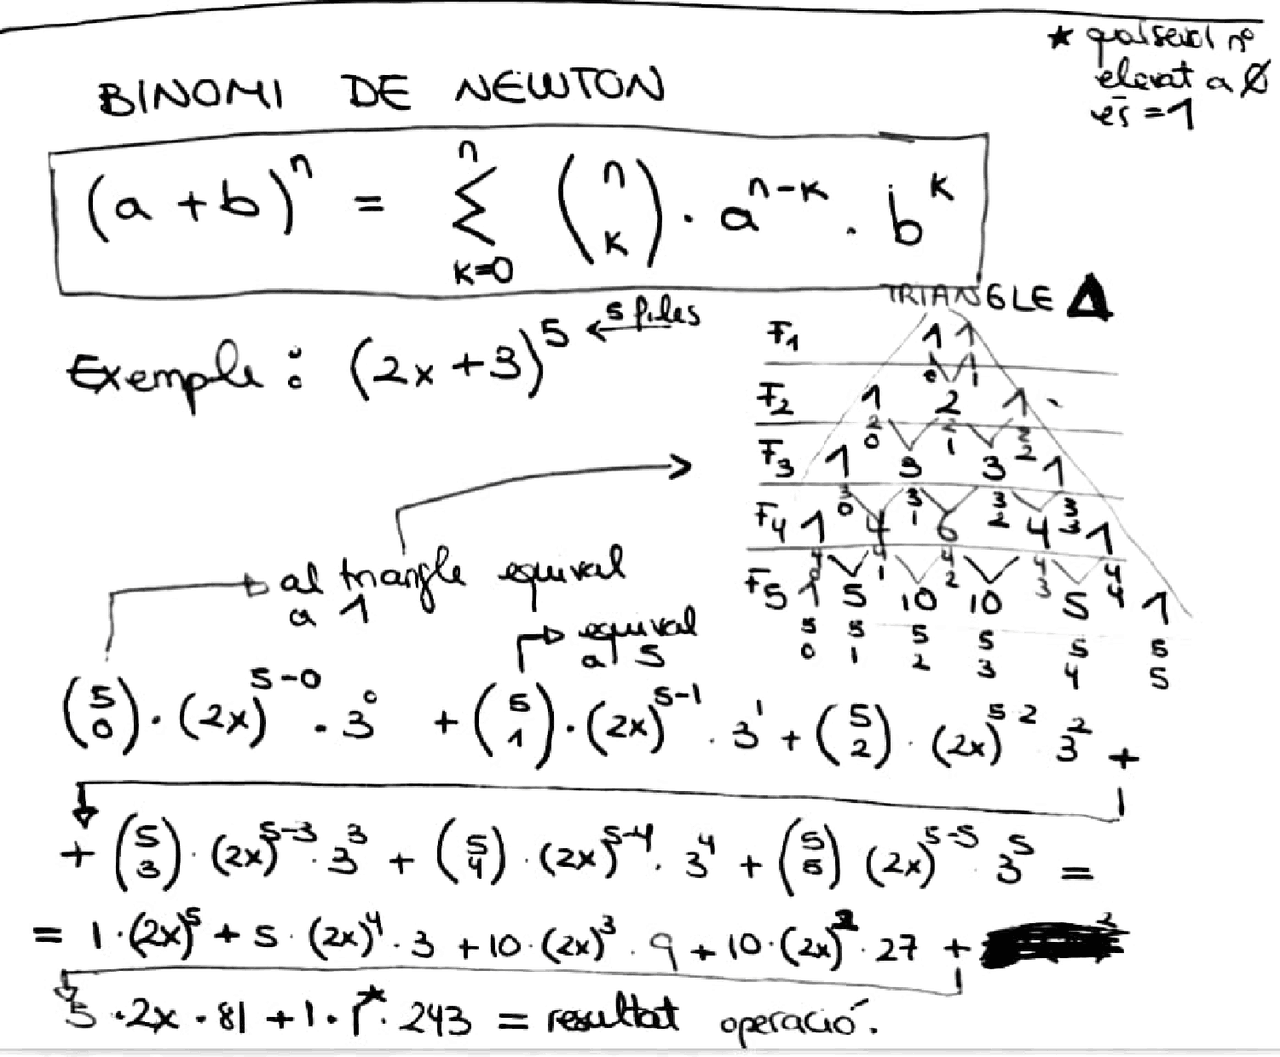 * qualsevol nº
elevat a 0
és = 1
BINOMI DE NEWTON
(a + b)^n = Σ_{k=0}^{n} (n k) · a^{n-k} · b^k
TRIANGLE Δ
Exemple : (2x + 3)^5 ← 5 files
F1 1 1
F2 1 2 1
2 0 2 1 2 2
F3 1 3 3 1
3 0 3 1 3 2 3 3
F4 1 4 6 4 1
4 0 4 1 4 2 4 3 4 4
F5 1 5 10 10 5 1
5 0 5 1 5 2 5 3 5 4 5 5
al triangle equival
a 1
equival
a 5
(5 0) · (2x)^{5-0} · 3^0 + (5 1) · (2x)^{5-1} · 3^1 + (5 2) · (2x)^{5 2} 3^2 +
+ (5 3) · (2x)^{5-3} · 3^3 + (5 4) · (2x)^{5-4} · 3^4 + (5 5) (2x)^{5-5} 3^5 =
= 1 · (2x)^5 + 5 · (2x)^4 · 3 + 10 · (2x)^3 · 9 + 10 · (2x)^2 · 27 +
5 · 2x · 81 + 1 · 1* · 243 = resultat operació.